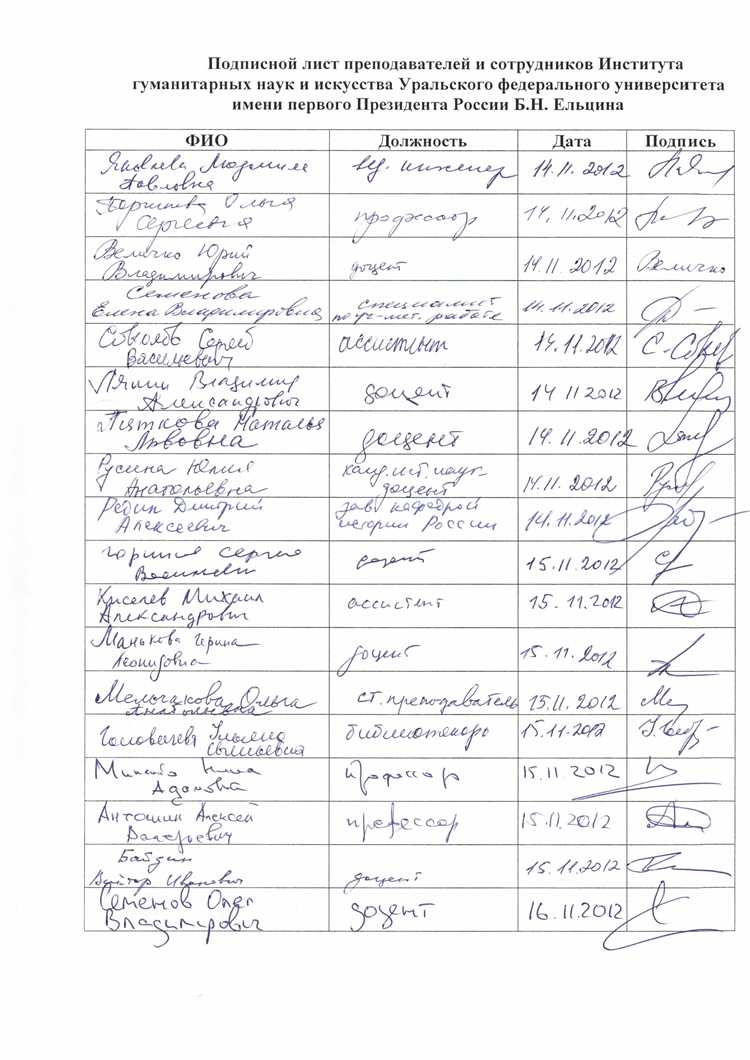 Подписной лист преподавателей и сотрудников Института
гуманитарных наук и искусства Уральского федерального университета
имени первого Президента России Б.Н. Ельцина
ФИО Должность Дата Подпись
Яковлева Людмила
Павловна
вед. инженер 14.11.2012
Ольга
Сергеевна
профессор 14.11.2012
Величко Юрий
Владимирович
доцент 14.11.2012 Величко
Семенова
Елена Владимировна
специалист
по уч-мет. работе
14.11.2012
Соколов Сергей
Васильевич
ассистент 14.11.2012
Ляпин Владимир
Александрович
доцент 14 11 2012
Пяткова Наталья
Львовна
доцент 14.11.2012
Русина Юлия
Анатольевна
канд. ист. наук
доцент
14.11.2012
Редин Дмитрий
Алексеевич
зав кафедрой
истории России
14.11.2012
Сергей
доцент 15.11.2012
Киселев Михаил
Александрович
ассистент 15.11.2012
Манькова Ирина
Леонидовна
доцент 15.11.2012
Мельчакова Ольга
Анатольевна
ст. преподаватель 15.11.2012
Татьяна
библиотекарь 15.11.2012
Нина
Адамовна
профессор 15.11.2012
Антошин Алексей
Валерьевич
профессор 15.11.2012
Байдин
Виктор Иванович
доцент 15.11.2012
Семенов Олег
Владимирович
доцент 16.11.2012